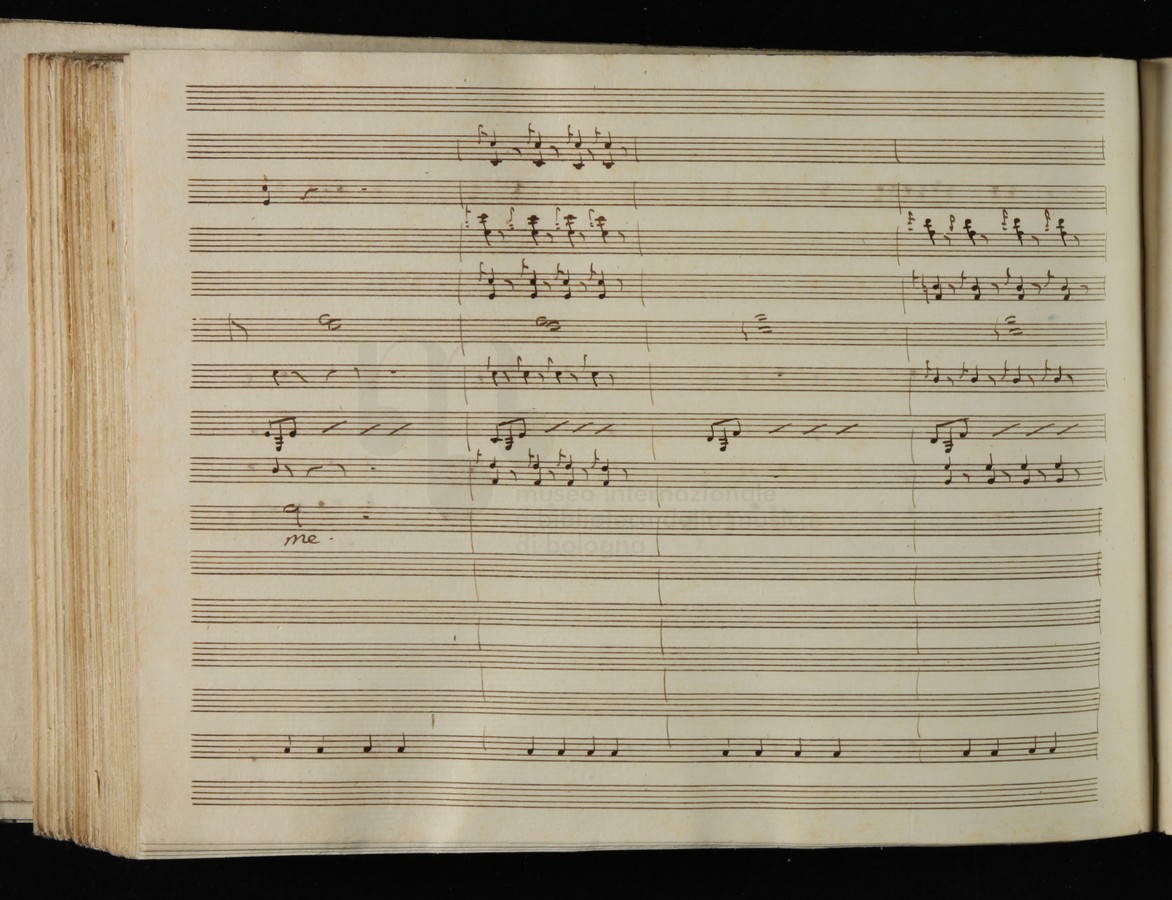 museo internazionale
e biblioteca della musica
di bologna
me.